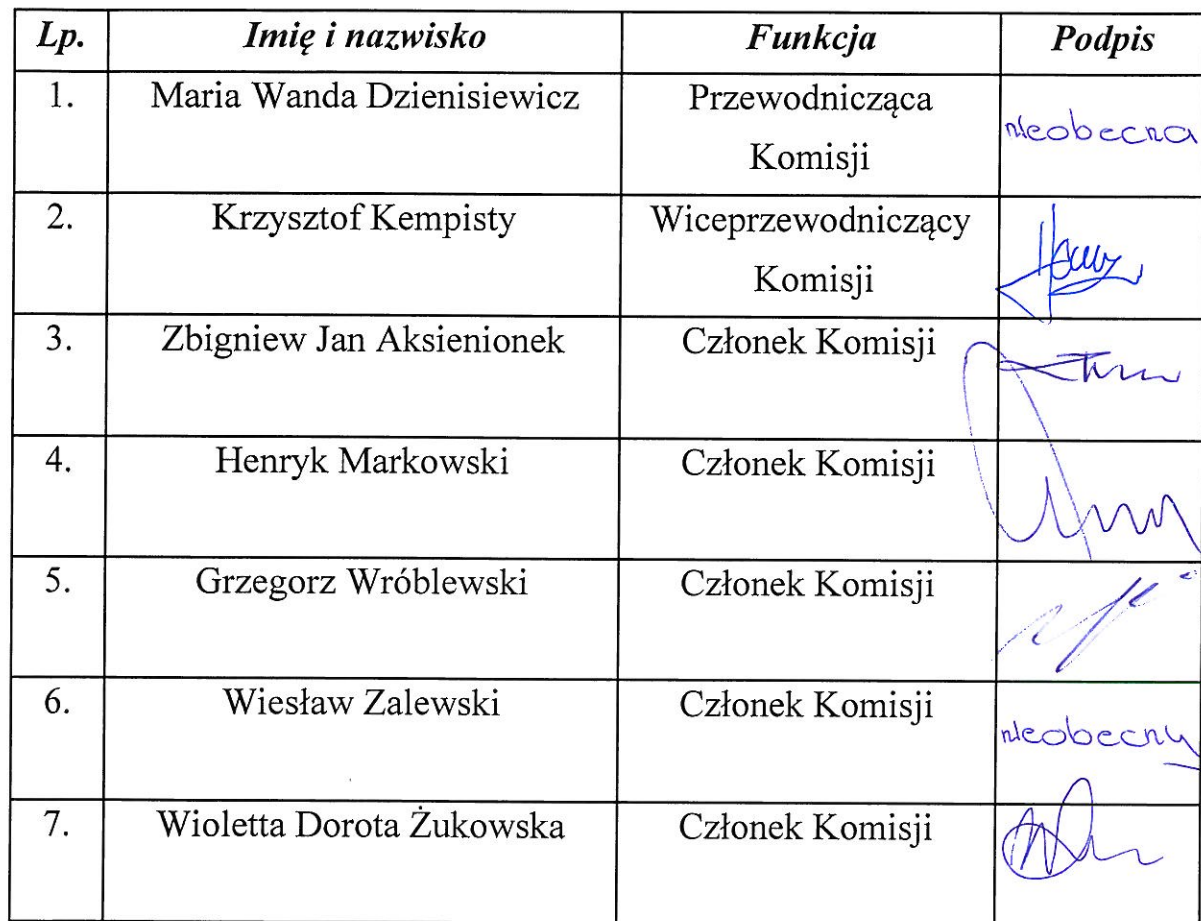 Lp. Imię i nazwisko Funkcja Podpis
1. Maria Wanda Dzienisiewicz Przewodnicząca
Komisji nieobecna
2. Krzysztof Kempisty Wiceprzewodniczący
Komisji
3. Zbigniew Jan Aksienionek Członek Komisji
4. Henryk Markowski Członek Komisji
5. Grzegorz Wróblewski Członek Komisji
6. Wiesław Zalewski Członek Komisji nieobecny
7. Wioletta Dorota Żukowska Członek Komisji